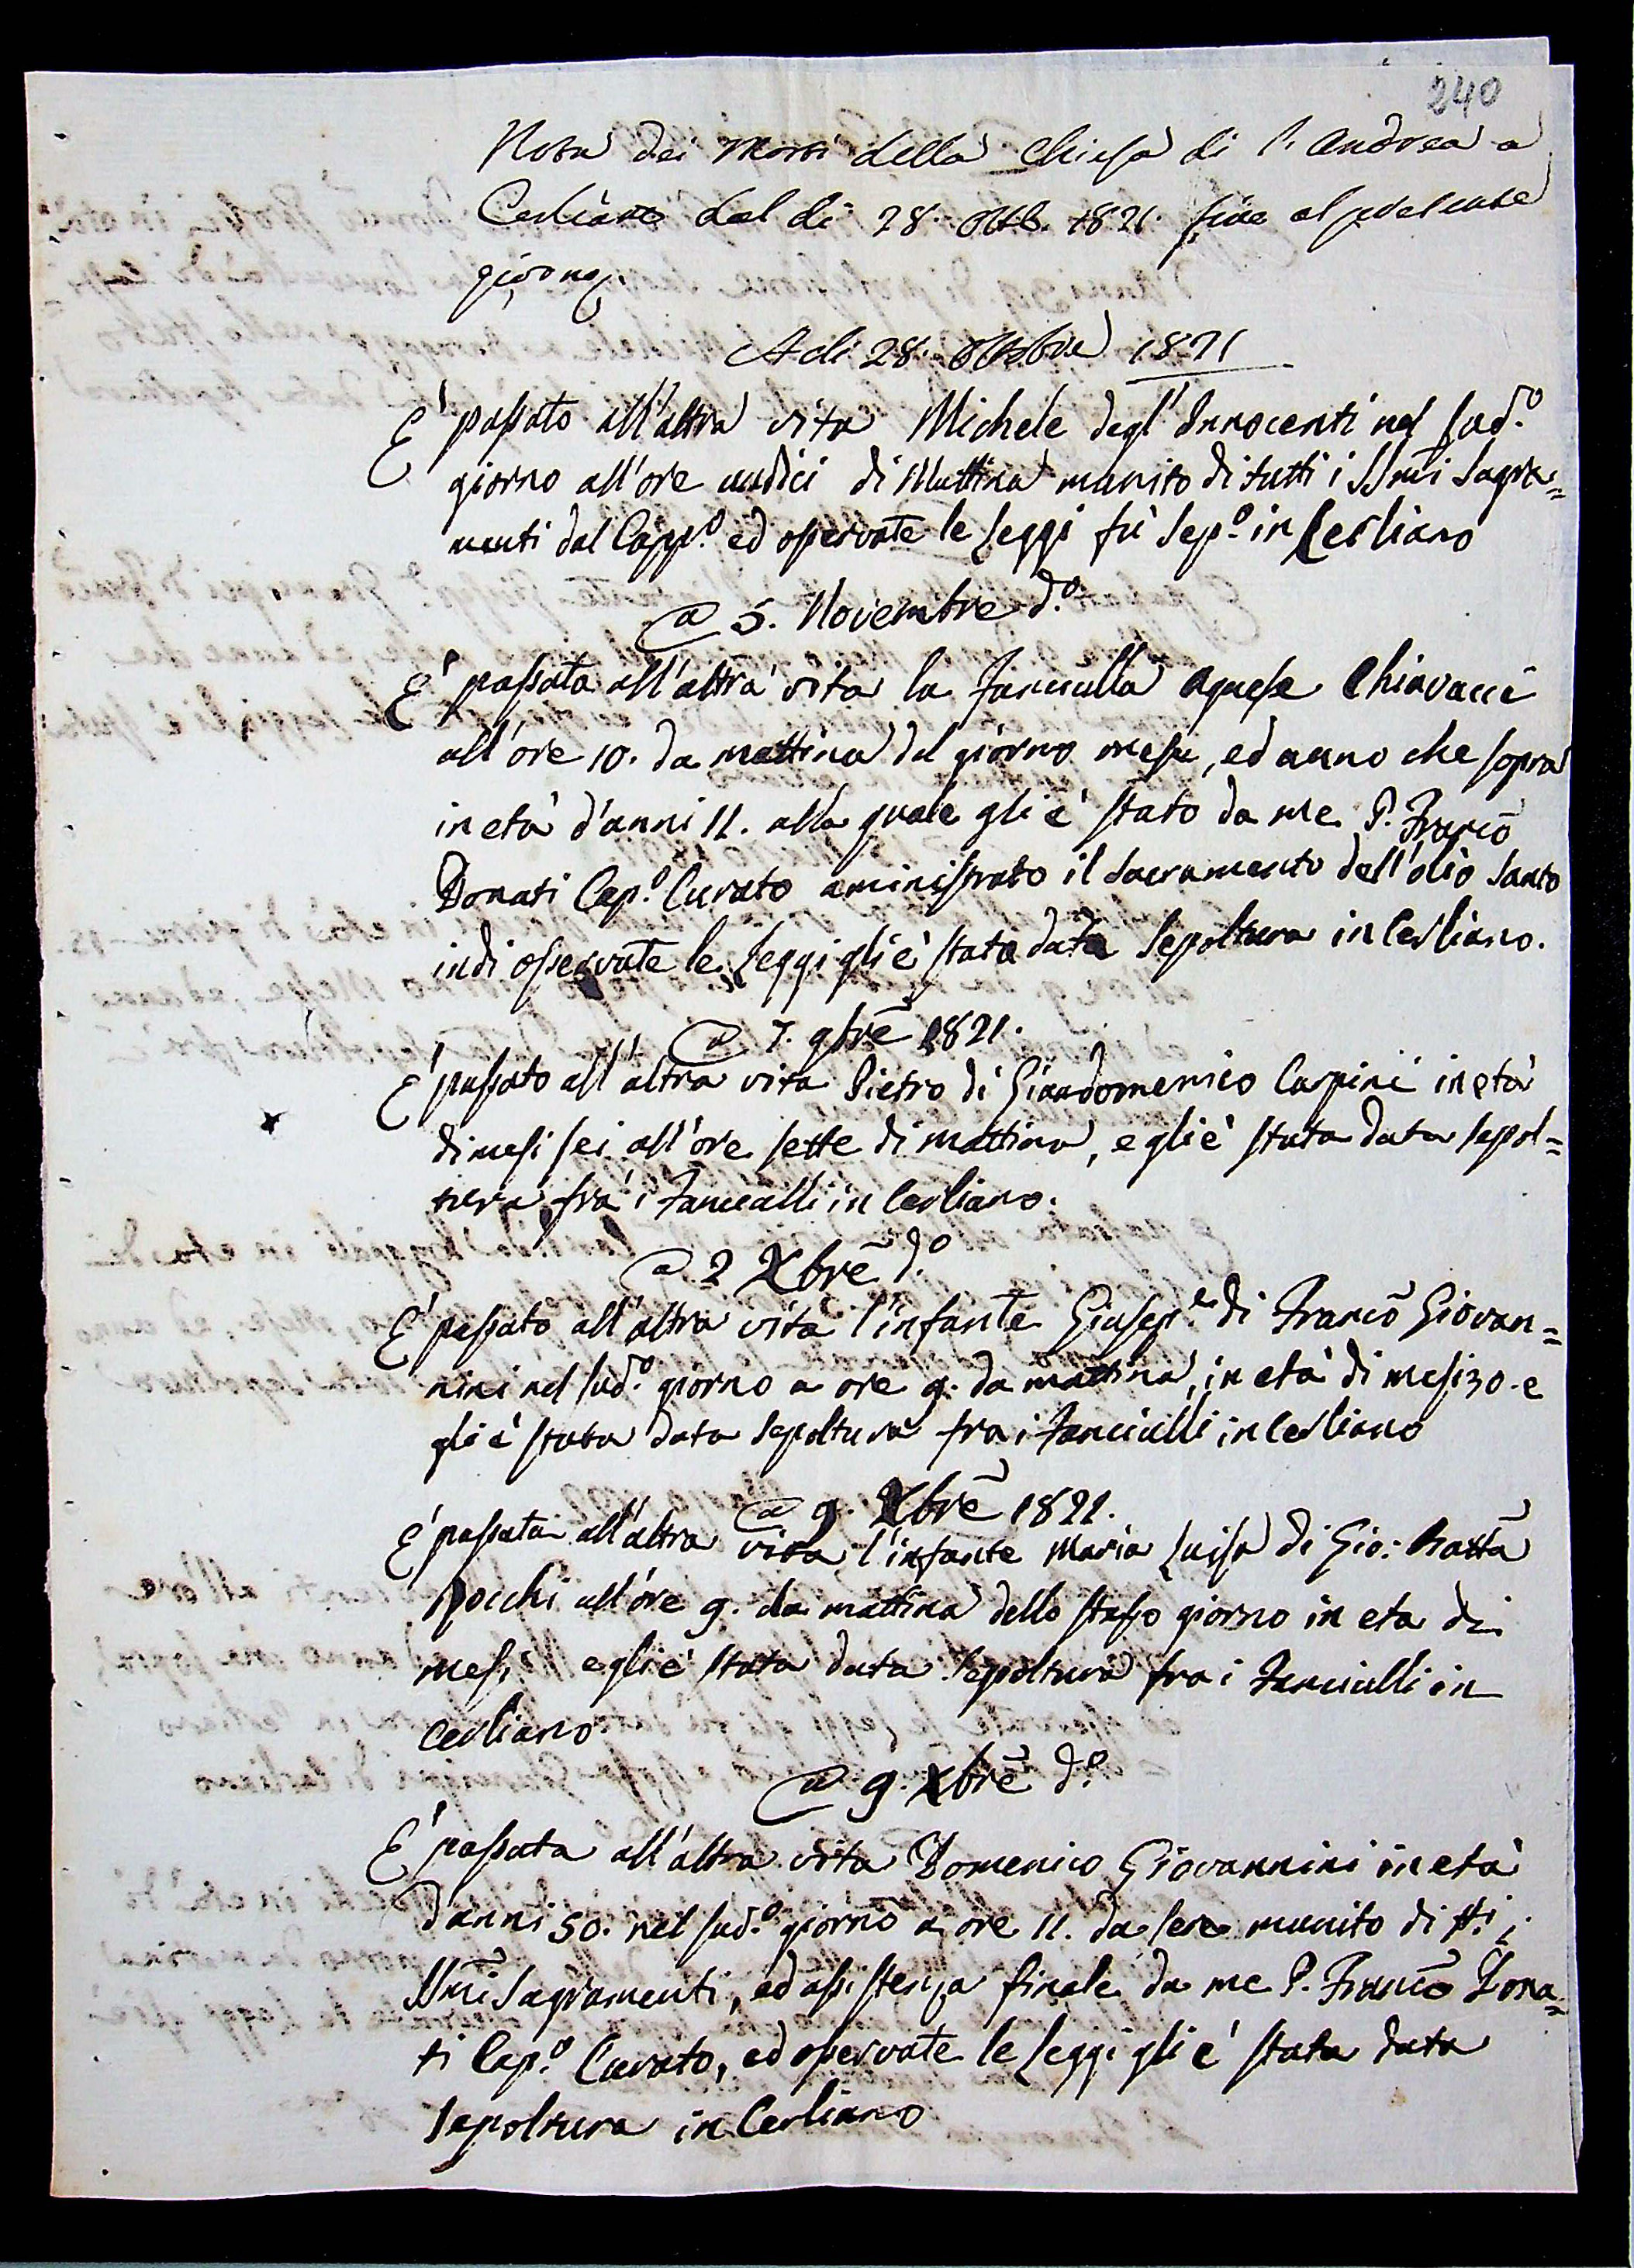 240
Nota dei Morti della Chiesa di S. Andrea a
Cerliano dal dì 28. Ottb. 1821. fino al presente
giorno.
A dì 28. Ottobre 1821
E' passato all'altra vita Michele degl'Innocenti nel sud.º
giorno all'ore undici di Mattina munito di tutti i SSmi Sagra=
menti dal Capp.º ed osservate le Leggi fù sep.º in Cerliano
a 5. Novembre d.º
E' passata all'altra vita la fanciulla Agnese Chiavacci
all'ore 10. da mattina del giorno mese, ed anno che sopra
in età d'anni 11. alla quale gli è stato da me P. Franc̃o
Donati Cap.º Curato aministrato il Sacramento dell'olio Santo
indi osservate le Leggi gli è stata data Sepoltura in Cerliano.
a 7. 9bre 1821.
E' passato all'altra vita Pietro di Giandomenico Carpini in età
di mesi sei all'ore sette di mattina, e gli è stata data sepol=
tura frà i fanciulli in Cerliano.
a 2 Xbre d.º
E' passato all'altra vita l'infante Giusep.e di Franc̃o Giovan=
nini nel sud.º giorno a ore 9. da mattina, in età di mesi 30. e
gli è stata data sepoltura fra i fanciulli in Cerliano
a 9. Xbre 1821.
E' passata all'altra vita l'infante Maria Luisa di Gio: Batta
Pocchi all'ore 9. da mattina dello stesso giorno in eta di
mesi e gli è stata data sepoltura fra i fanciulli in
Cerliano
a 9. Xbre d.º
E' passata all'altra vita Domenico Giovannini in età
d'anni 50. nel sud.º giorno a ore 11. da sera munito di tti i
SSmi Sagramenti, ed assistenza finale da me P. Franc̃o Dona=
ti Cap.º Curato, ed osservate le Leggi gli è stata data
Sepoltura in Cerliano